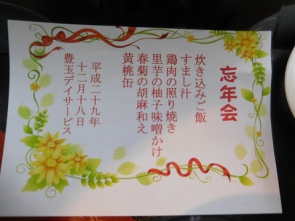 忘年会
炊き込みご飯
すまし汁
鶏肉の照り焼き
里芋の柚子味噌かけ
春菊の胡麻和え
黄桃缶
平成二十九年
十二月十八日
豊玉デイサービス